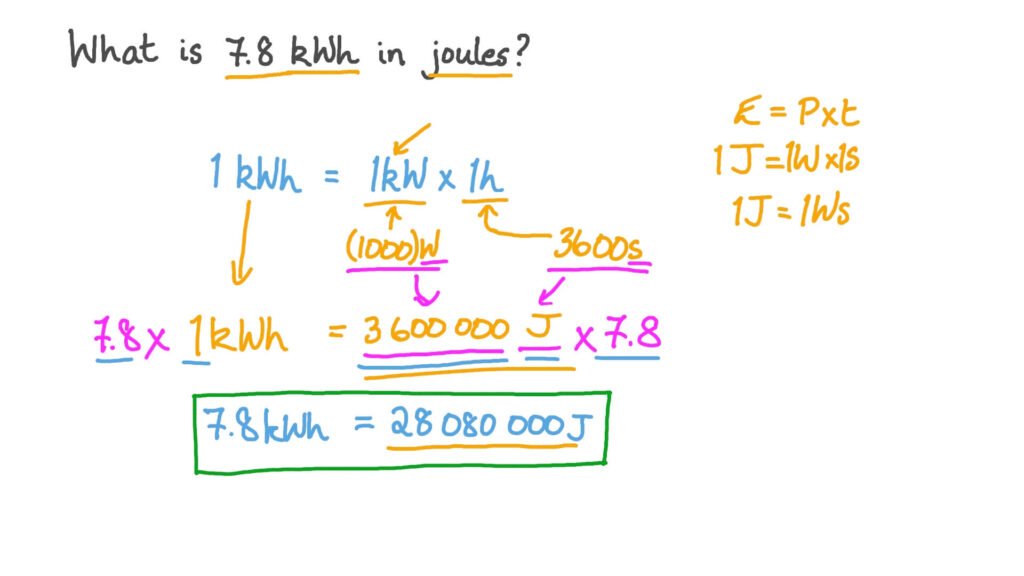 What is 7.8 kWh in joules?
E = P×t
1 J = 1W×1s
1J = 1Ws
1 kWh = 1kW × 1h
(1000)W 3600s
7.8 × 1kWh = 3 600 000 J × 7.8
7.8kWh = 28 080 000J